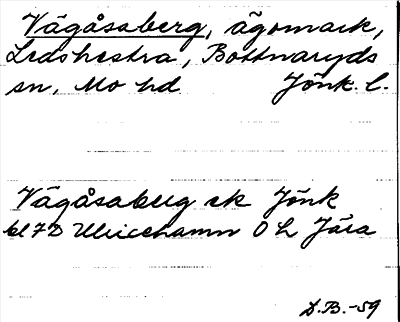 Vägåsaberg, ägomark,
Ledshestra, Bottnaryds
sn, Mo hd Jönk. l.
Vägåsaberg ek Jönk
bl 7D Ulricehamn Ö L Jära
D.B.-59